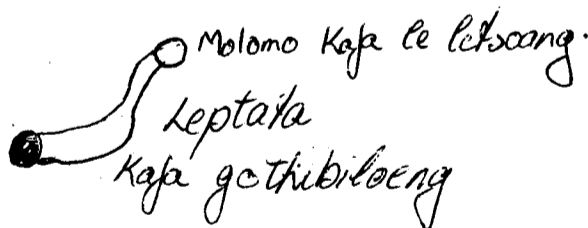 Molomo Kafa le letsoang.
Kafa gothibiloeng